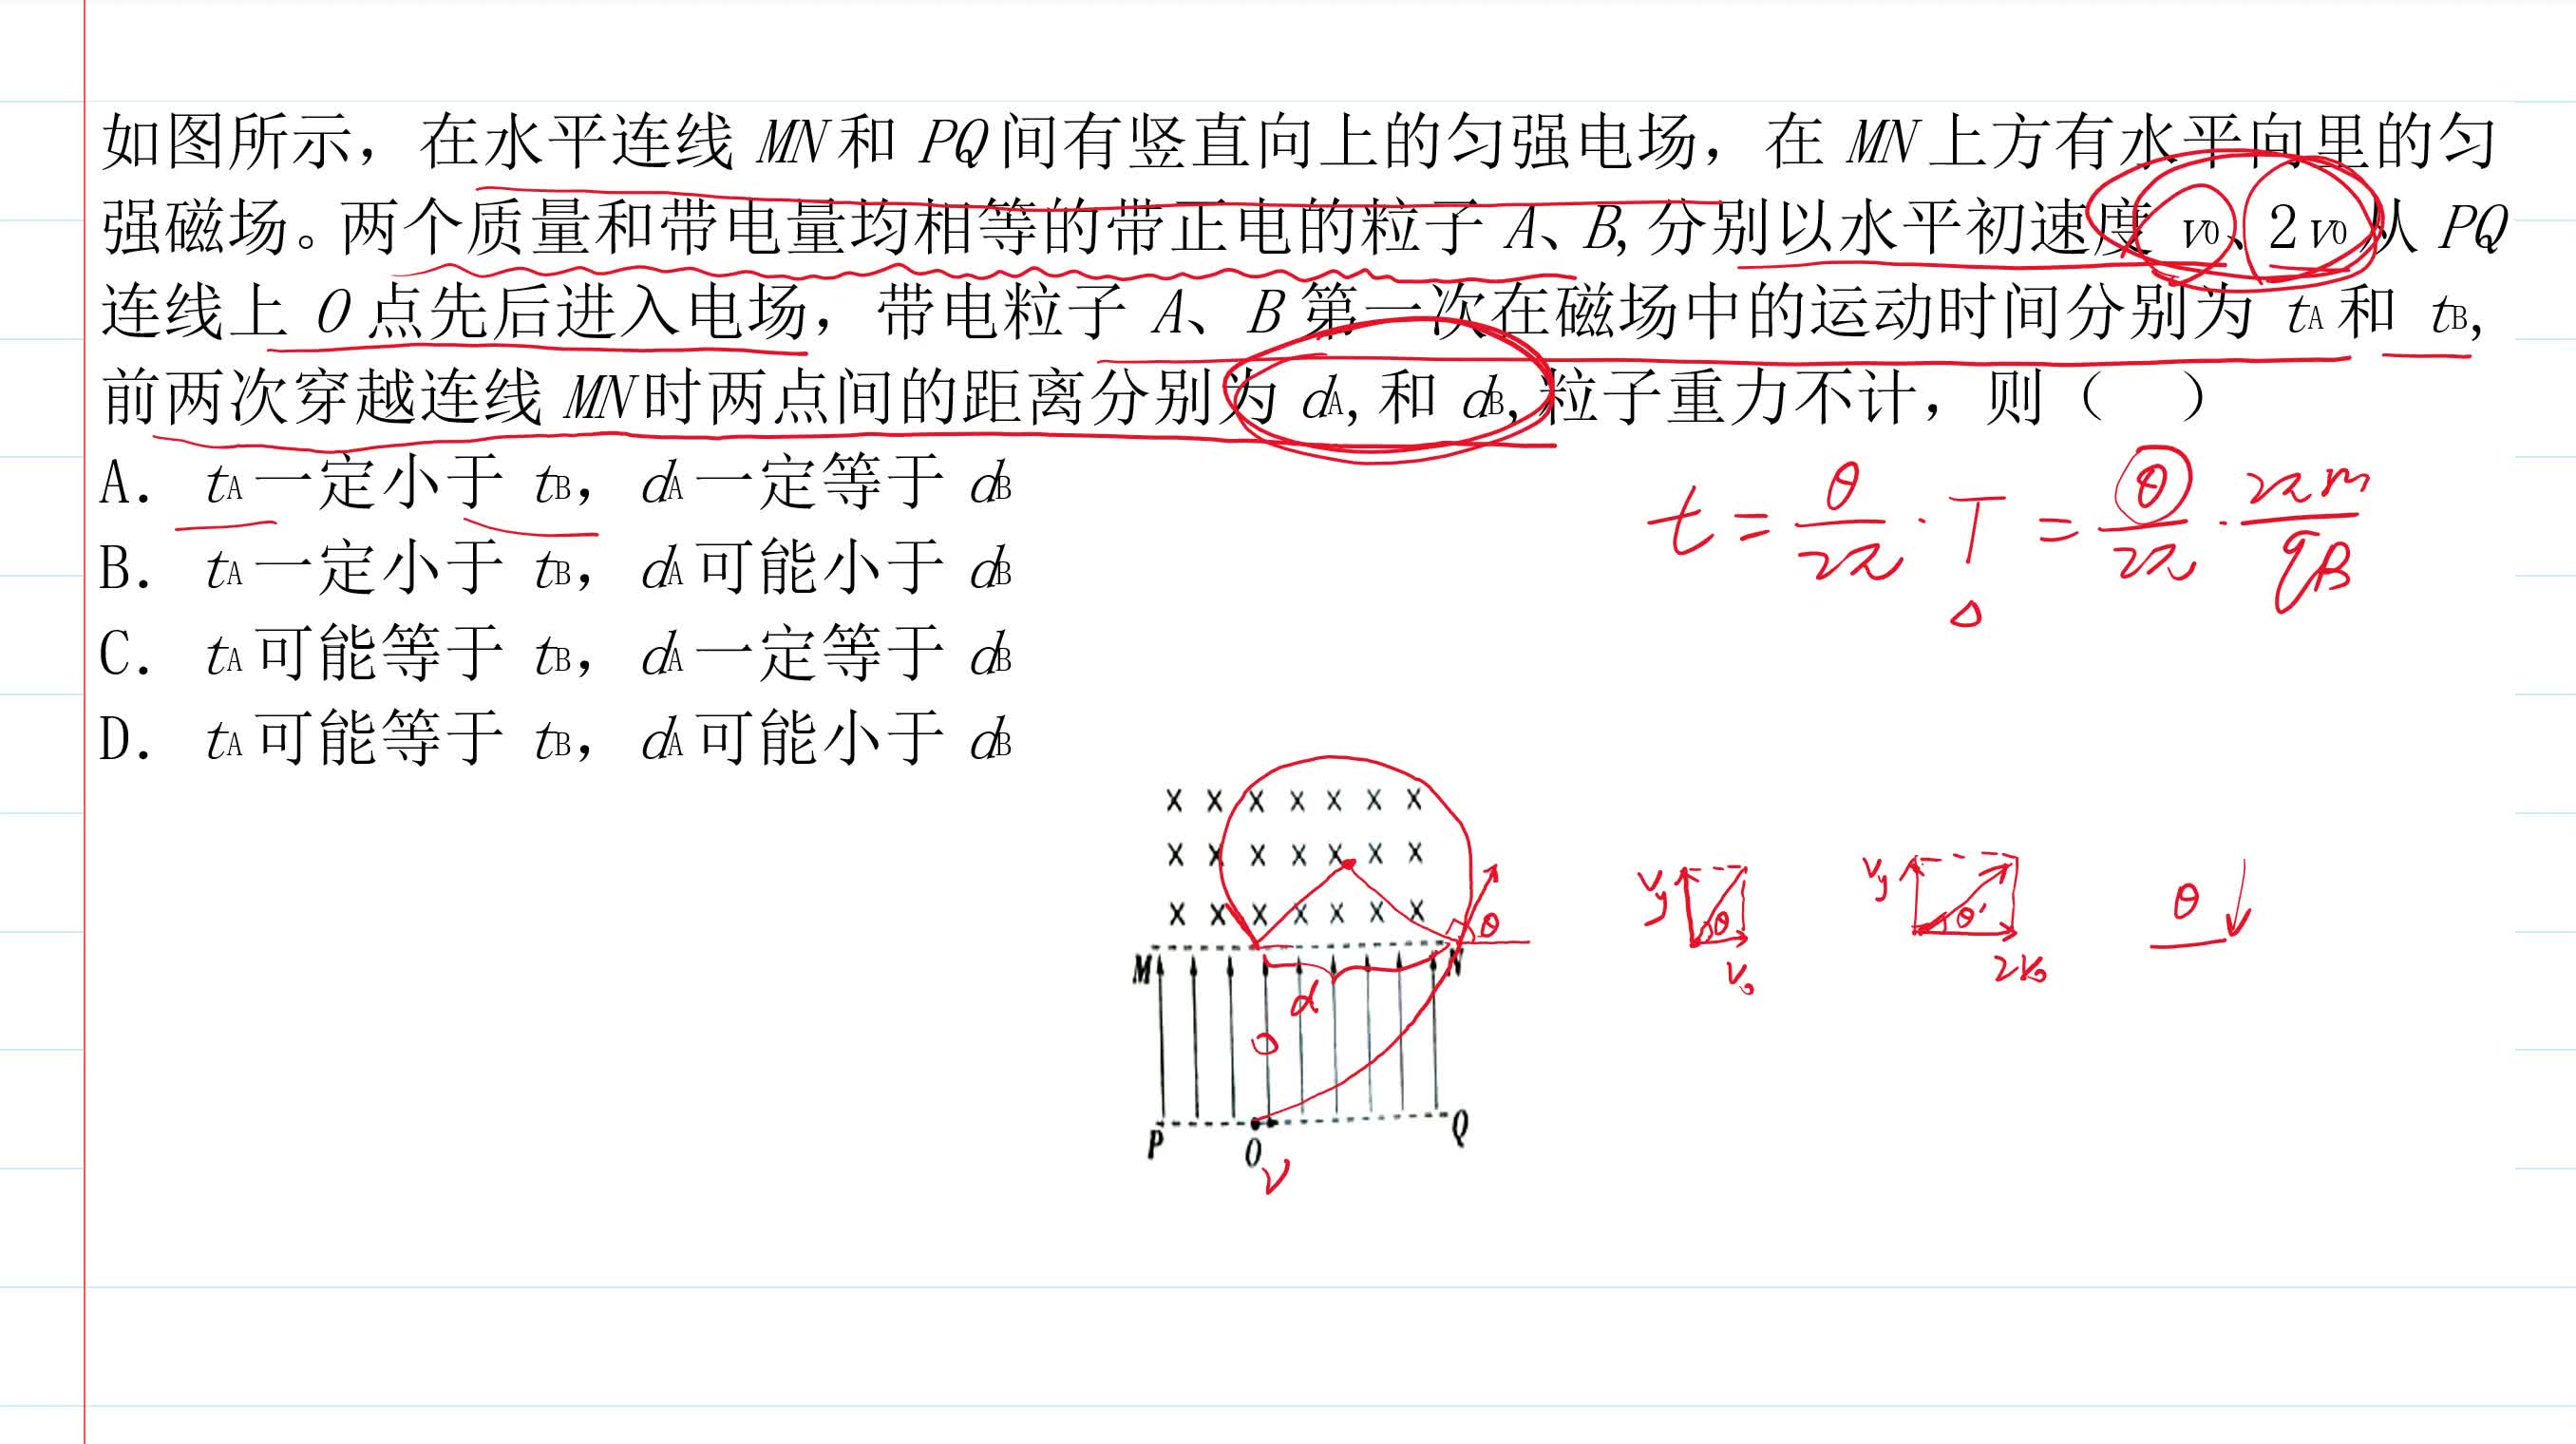 如图所示，在水平连线 MN 和 PQ 间有竖直向上的匀强电场，在 MN 上方有水平向里的匀
强磁场。两个质量和带电量均相等的带正电的粒子 A、B,分别以水平初速度 v0、2v0 从 PQ
连线上 O 点先后进入电场，带电粒子 A、B 第一次在磁场中的运动时间分别为 tA 和 tB,
前两次穿越连线 MN 时两点间的距离分别为 dA,和 dB,粒子重力不计，则（ ）
A. tA 一定小于 tB，dA 一定等于 dB
t = θ/2π · T = θ/2π · 2πm/qB
B. tA 一定小于 tB，dA 可能小于 dB
C. tA 可能等于 tB，dA 一定等于 dB
D. tA 可能等于 tB，dA 可能小于 dB
× × × × × × ×
× × × × × × ×
× × × × × × ×
θ
vy θ v0
vy θ' 2v0
θ
M N
d
P O Q
v